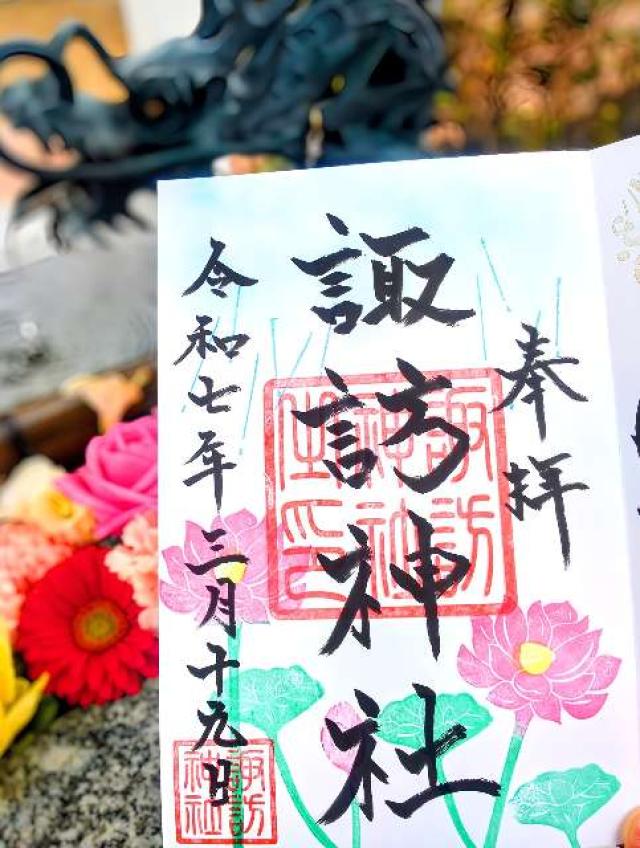 奉拝
諏訪神社
諏訪
神社
令和七年三月十九日
諏訪
神社